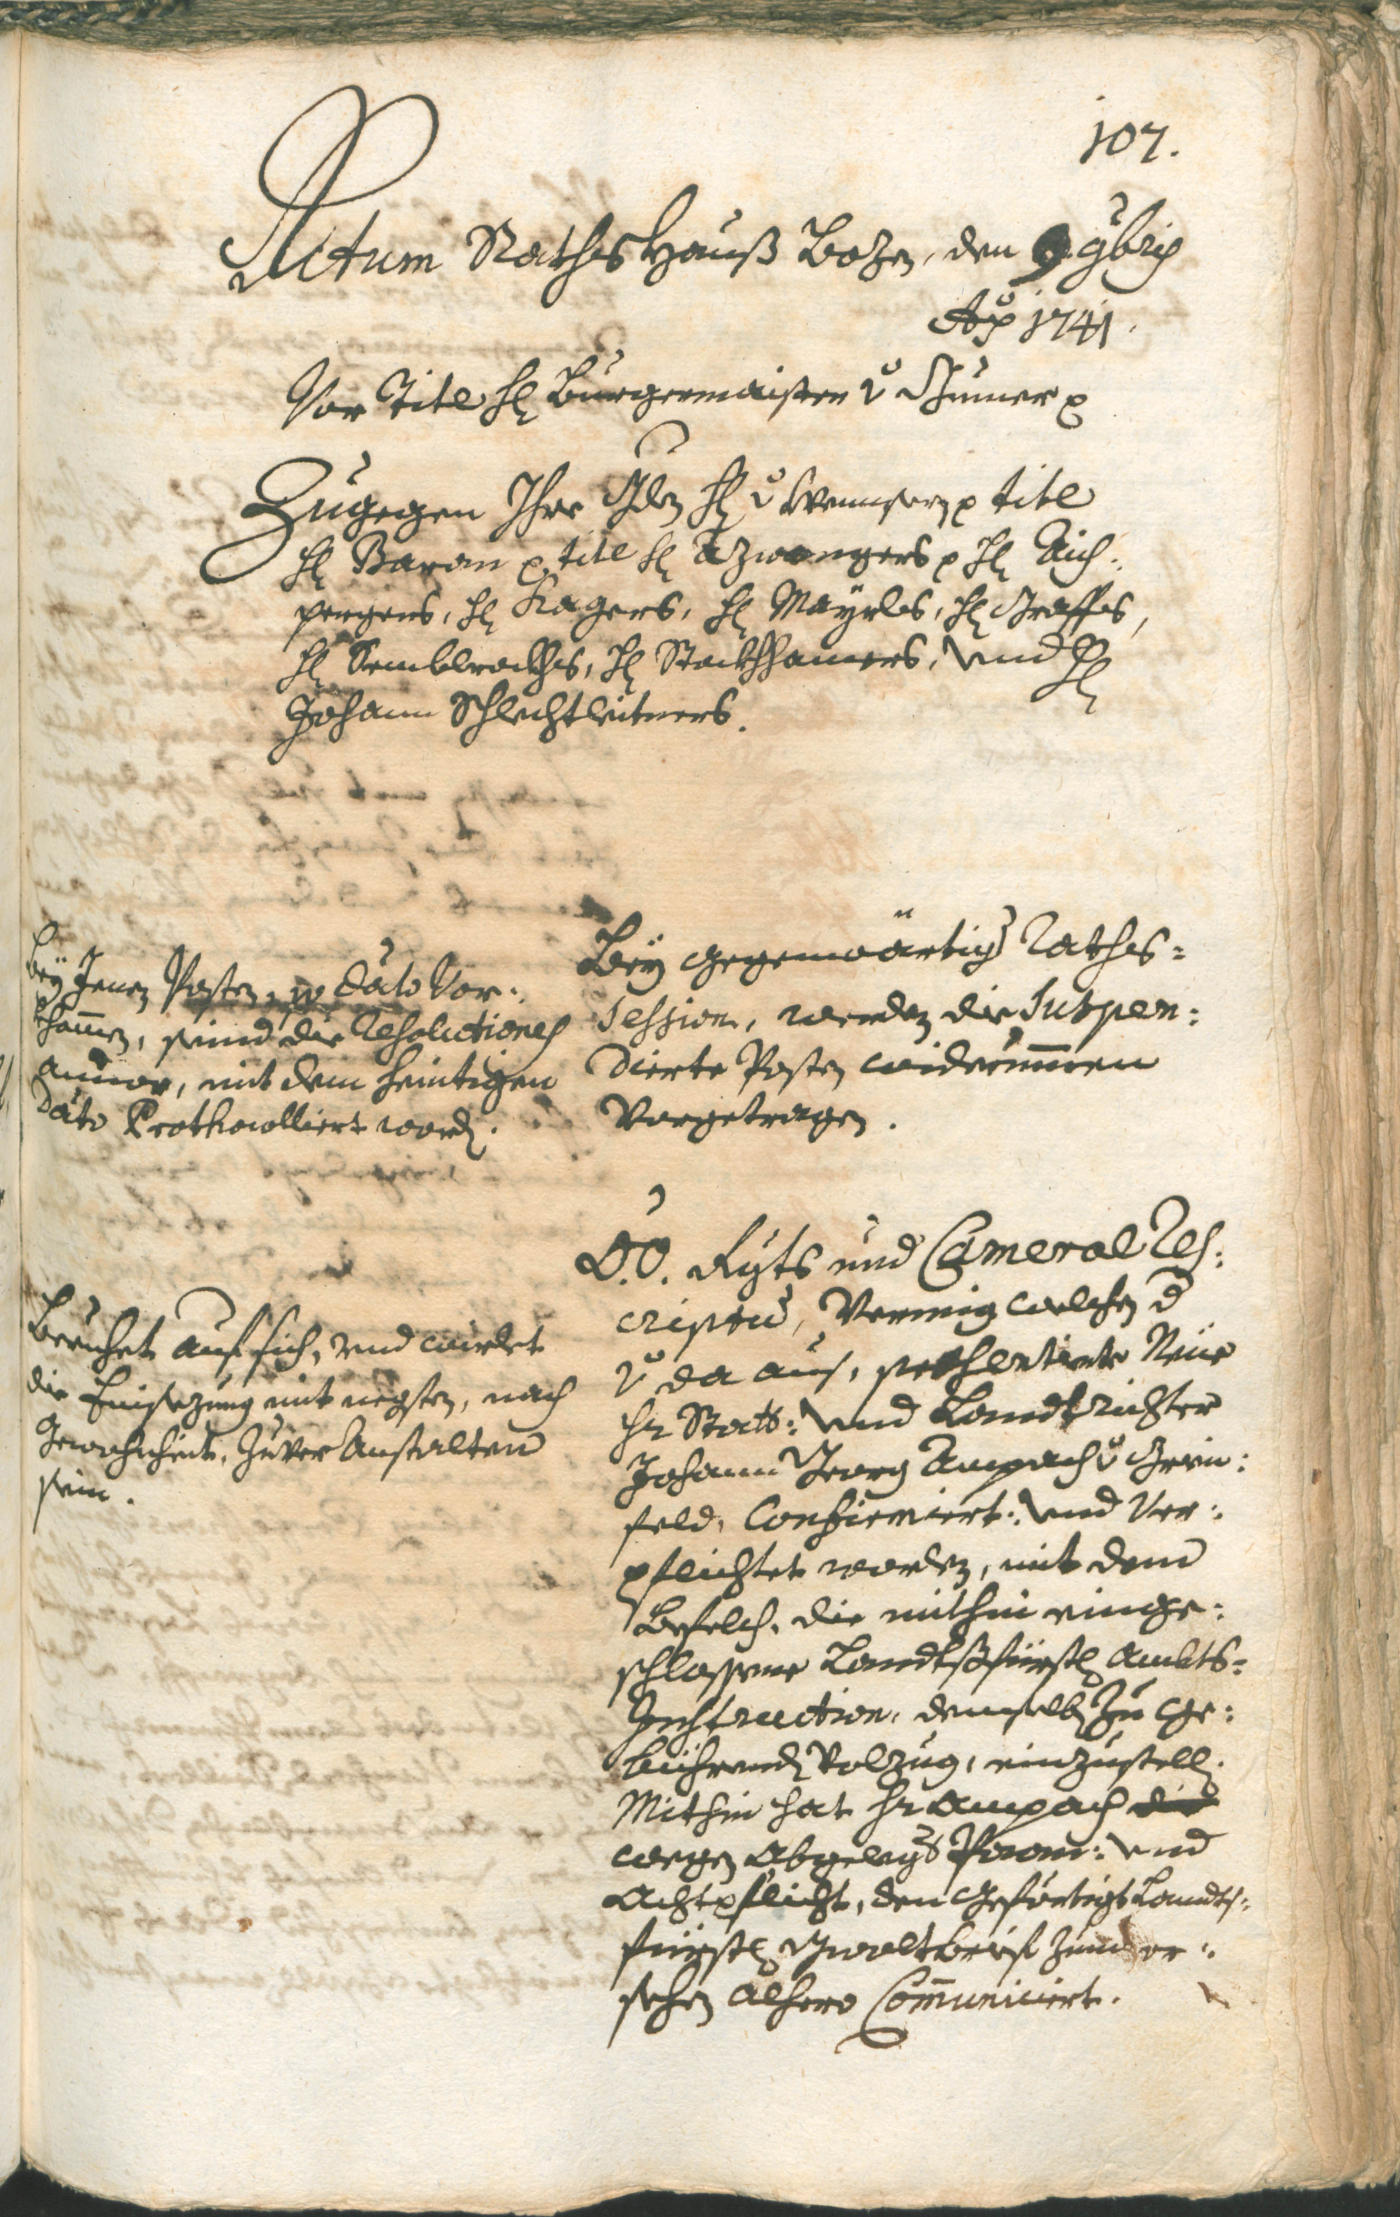 107.
Actum Rathshauß Bozen, den 9. 9bris
Ao 1741.
Vor Titl H. Burgermaistern v.
Zugegen Ihro Gdn H. v. titl
H. Baron p. titl H. Azwangers p H. Aich:
pergers, H. Kagers, H. Mayrls, H. Graffes,
H. Semblrockhs, H. Stockhhamers, und H.
Johann Schlechtleitners.
Bey Jenen Posten, so dato Vor:
khomen, seind die Resolutiones
anvor, mit dem heintigen
dato Prothocolliert word.
Bey gegenwärtig Raths=
Session, werden die Suspen:
dierte Posten widerumen
Vorgetragen.
Beruhet auf sich, und wirdet
die Einsezung mit negsten, nach
Gewohnheit, zuveranstalten
sein.
O.O. Rgts und Cameral Res:
criptu, Vermüg welchen d
v da aus, presentierte Neue
Hr Statt: und Landtrichter
Johann Georg Ampach v Grien:
feld, Confirmiert: und Ver:
pflichtet worden, mit dem
Befelch, die mithin einge:
schlossene Landtsfürstl Ambts=
Instruction, demselb zu ge:
bührend Volzug, einzustell.
Mithin hat Hr Ampach die
wegen abgelegt und
Achtpflicht, den gefertigt Landts:
fürstl Gwaltbrief zum er:
sehen alhero Communiciert.